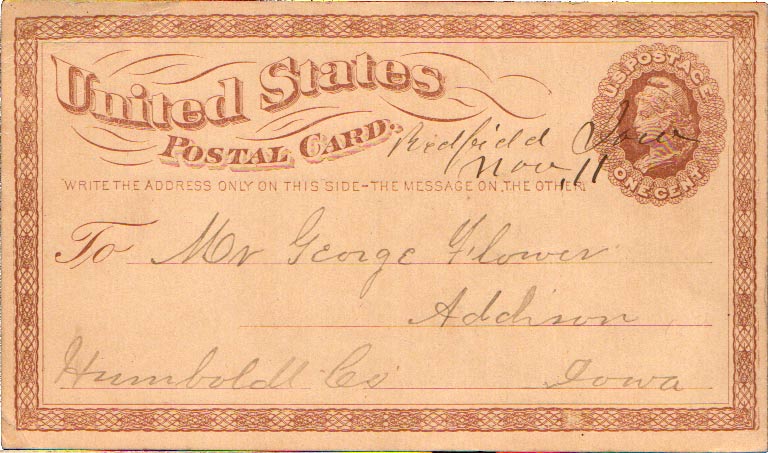 United States
POSTAL CARD.
U.S. POSTAGE
ONE CENT
Redfield Iowa
Nov, 11
WRITE THE ADDRESS ONLY ON THIS SIDE - THE MESSAGE ON THE OTHER
To Mr George Flower
Addison
Humboldt Co Iowa